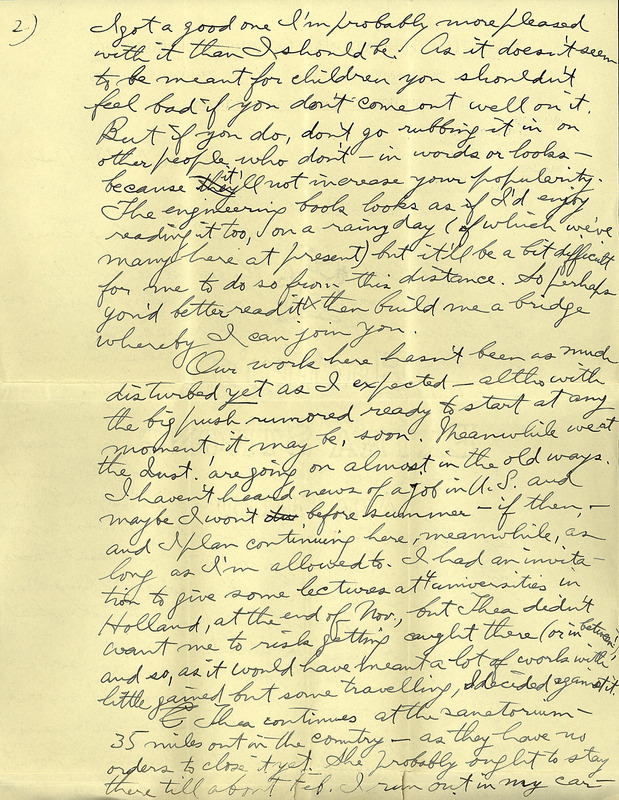 2)
I got a good one I'm probably more pleased
with it than I should be. As it doesn't seem
to be meant for children you shouldn't
feel bad if you don't come out well on it.
But if you do, don't go rubbing it in on
other people who don't – in words or looks –
because they it'll not increase your popularity.
The engineering book looks as if I'd enjoy
reading it too, on a rainy day (of which we've
many here at present) but it'll be a bit difficult
for me to do so from this distance. So perhaps
you'd better read it & then build me a bridge
whereby I can join you.
Our work here hasn't been as much
disturbed yet as I expected – altho with
the big push rumored ready to start at any
moment, it may be, soon. Meanwhile we at
the Inst. are going on almost in the old ways.
I haven't heard news of a job in U.S. and
maybe I won't before summer – if then, –
and I plan continuing here, meanwhile, as
long as I'm allowed to. I had an invita-
tion to give some lectures at 4 universities in
Holland, at the end of Nov., but Thea didn't
want me to risk getting caught there (or in between),
and so, as it would have meant a lot of work with
little gained but some travelling, I decided against it.
Thea continues at the sanatorium –
35 miles out in the country – as they have no
orders to close it yet. She probably ought to stay
there till about Feb. I run out in my car –